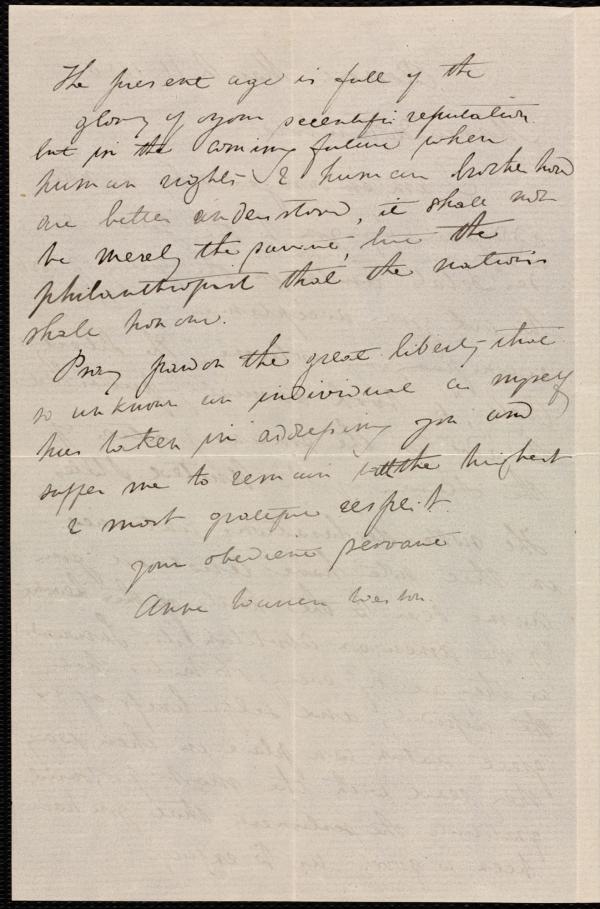 The present age is full of the
glory of your scientific reputation
but in the coming future when
human rights & human brotherhood
are better understood, it shall not
be merely the savant, but the
philanthropist that the nations
shall honour.
Pray pardon the great liberty that
so unknown an individual as myself
has taken in addressing you and
suffer me to remain with the highest
& most grateful respect
your obedient servant
Anne Warren Weston.